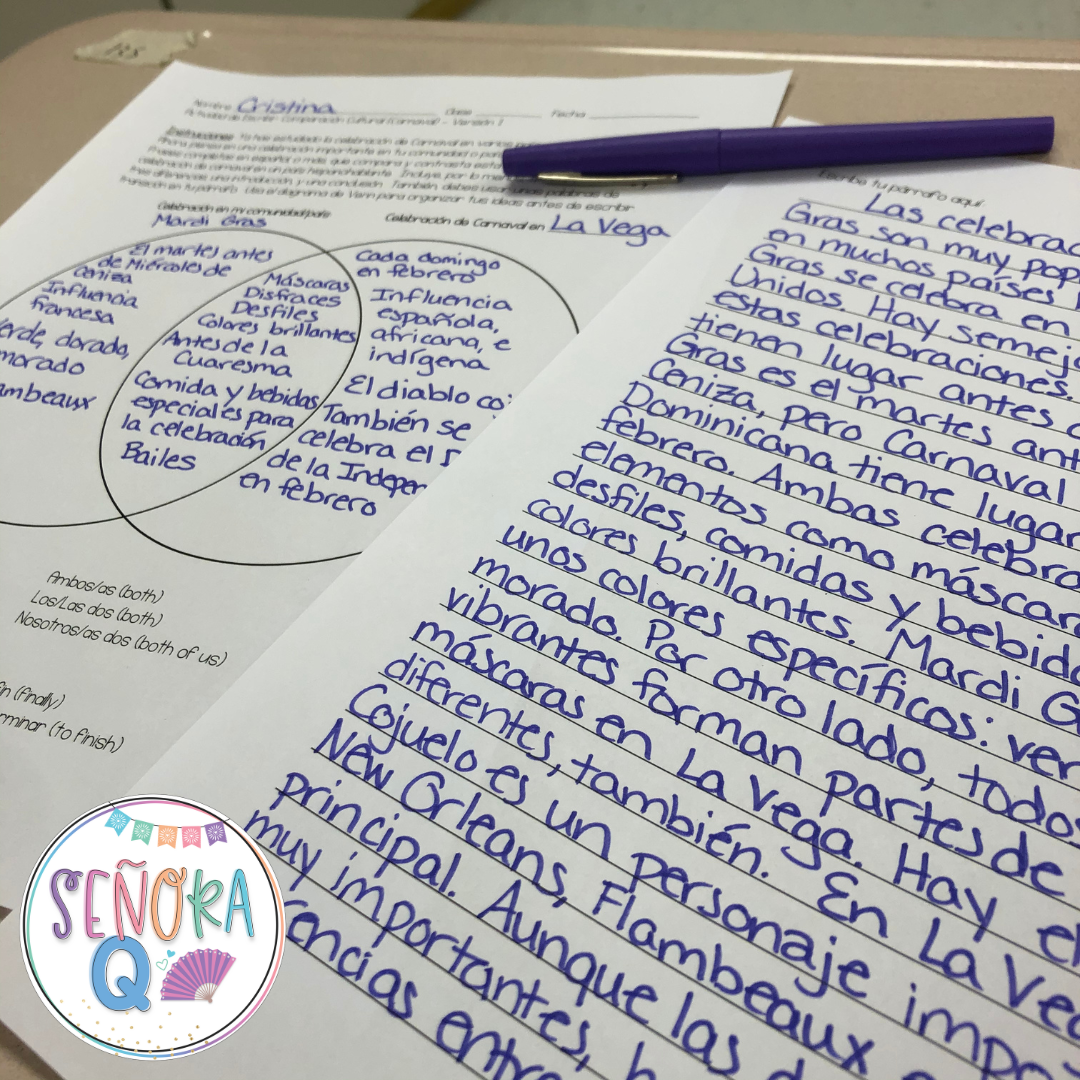 RS
Nombre Cristina Clase Fecha
Actividad de Escribir: Comparación Cultural (Carnaval) - Versión 1
Instrucciones: Ya has estudiado la celebración de Carnaval en varios
Ahora piensa en una celebración importante en tu comunidad o
frases completas en español o más que compara y contrasta esta
celebración de carnaval en un país hispanohablante. Incluye por lo
tres diferencias, una introducción y una conclusión. También, debes usar unas palabras de
transición en tu párrafo. Usa el diagrama de Venn para organizar tus ideas antes de escribir.
Celebración en mi comunidad/país
Mardi Gras
Celebración de Carnaval en La Vega
El martes antes
de Miércoles de
Ceniza
Influencia
francesa
verde, dorado,
morado
ambeaux
Máscaras
Disfraces
Desfiles
Colores brillantes
Antes de la
Cuaresma
Comida y bebidas
especiales para
la celebración
Bailes
Cada domingo
en febrero
Influencia
española,
africana, e
indígena
El diablo coj
También se
celebra el
de la Indepen
en febrero
Ambos/as (both)
Los/Las dos (both)
Nosotros/as dos (both of us)
fin (finally)
rminar (to finish)
Escribe tu párrafo aquí.
Las celebrac
Gras son muy pop
en muchos países
Gras se celebra en
Unidos. Hay semej
estas celebraciones.
tienen lugar antes
Gras es el martes ant
Ceniza, pero Carnaval
Dominicana tiene lugar
febrero. Ambas celebra
elementos como máscar
desfiles, comidas y bebida
colores brillantes. Mardi G
unos colores específicos: ver
morado. Por otro lado, todos
vibrantes forman partes de
máscaras en La Vega. Hay el
diferentes, también. En La Veg
Cojuelo es un personaje impo
New Orleans, Flambeaux
principal. Aunque las d
muy importantes, h
rencias entre
SEÑORA
Q